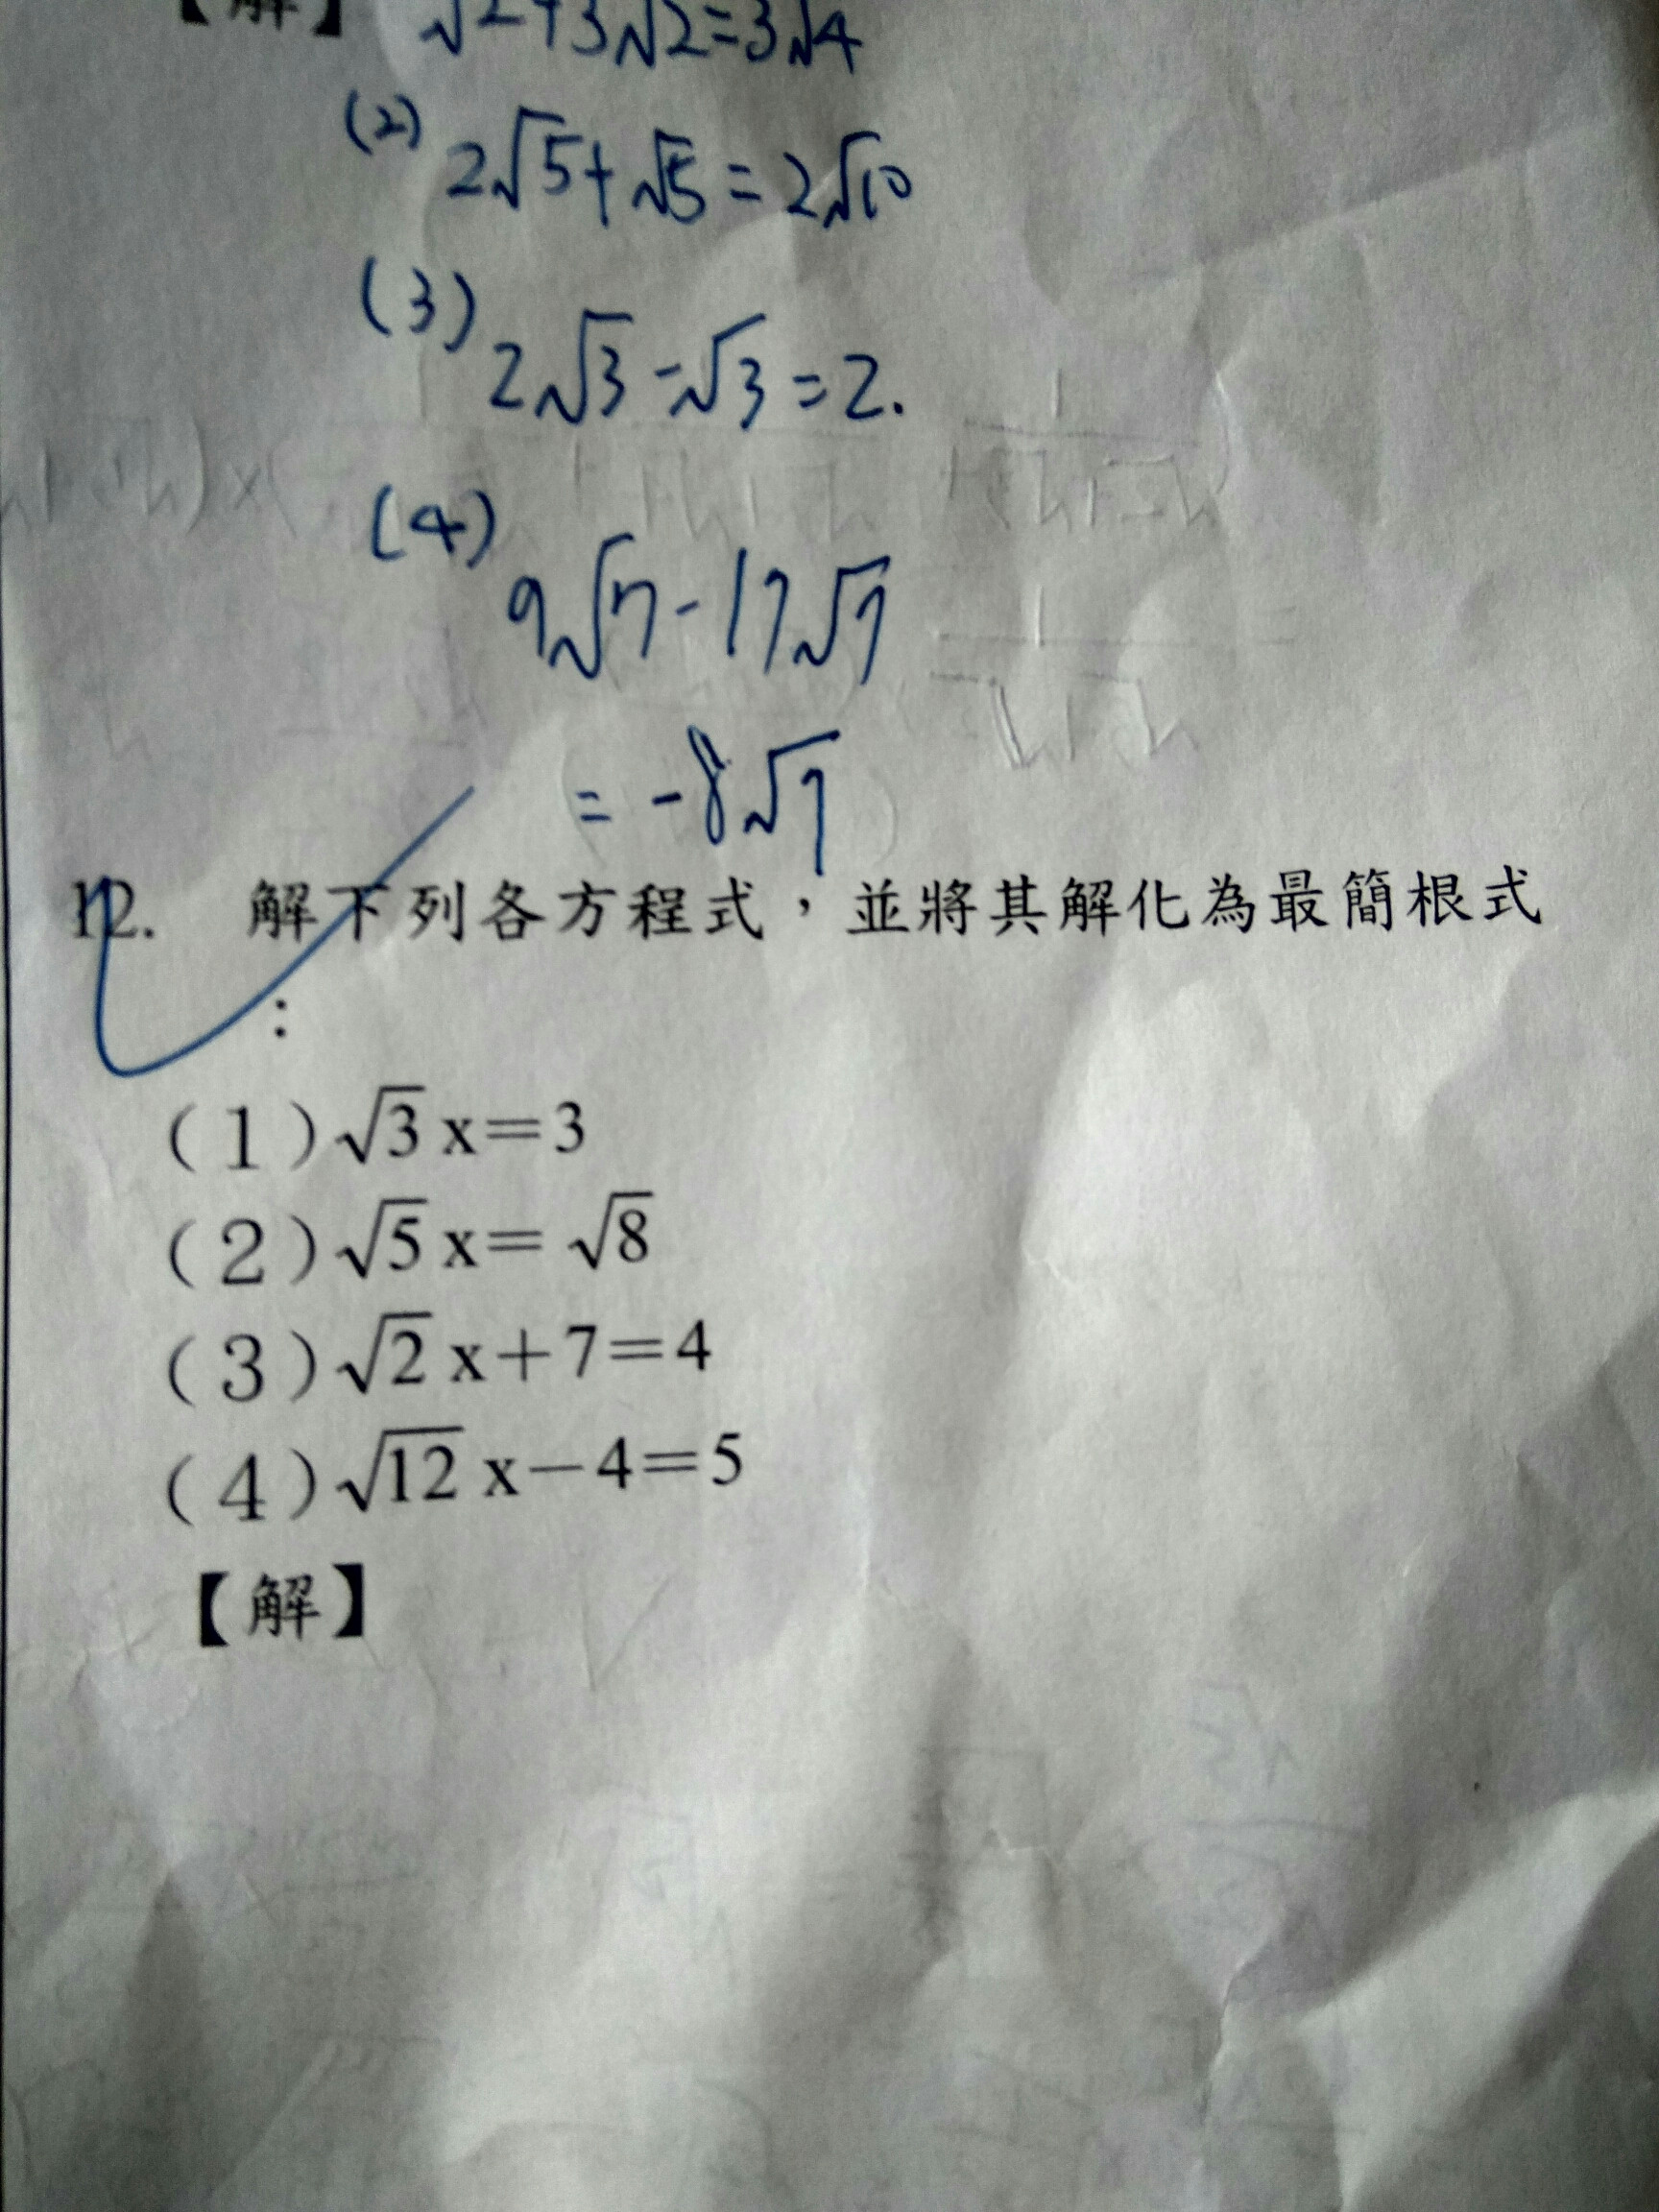 【解】 √2+3√2=3√4
(2) 2√5+√5=2√10
(3) 2√3-√3=2.
(4) 9√7-17√7
= -8√7
12. 解下列各方程式，並將其解化為最簡根式
：
(1)√3 x=3
(2)√5 x= √8
(3)√2 x+7=4
(4)√12 x-4=5
【解】